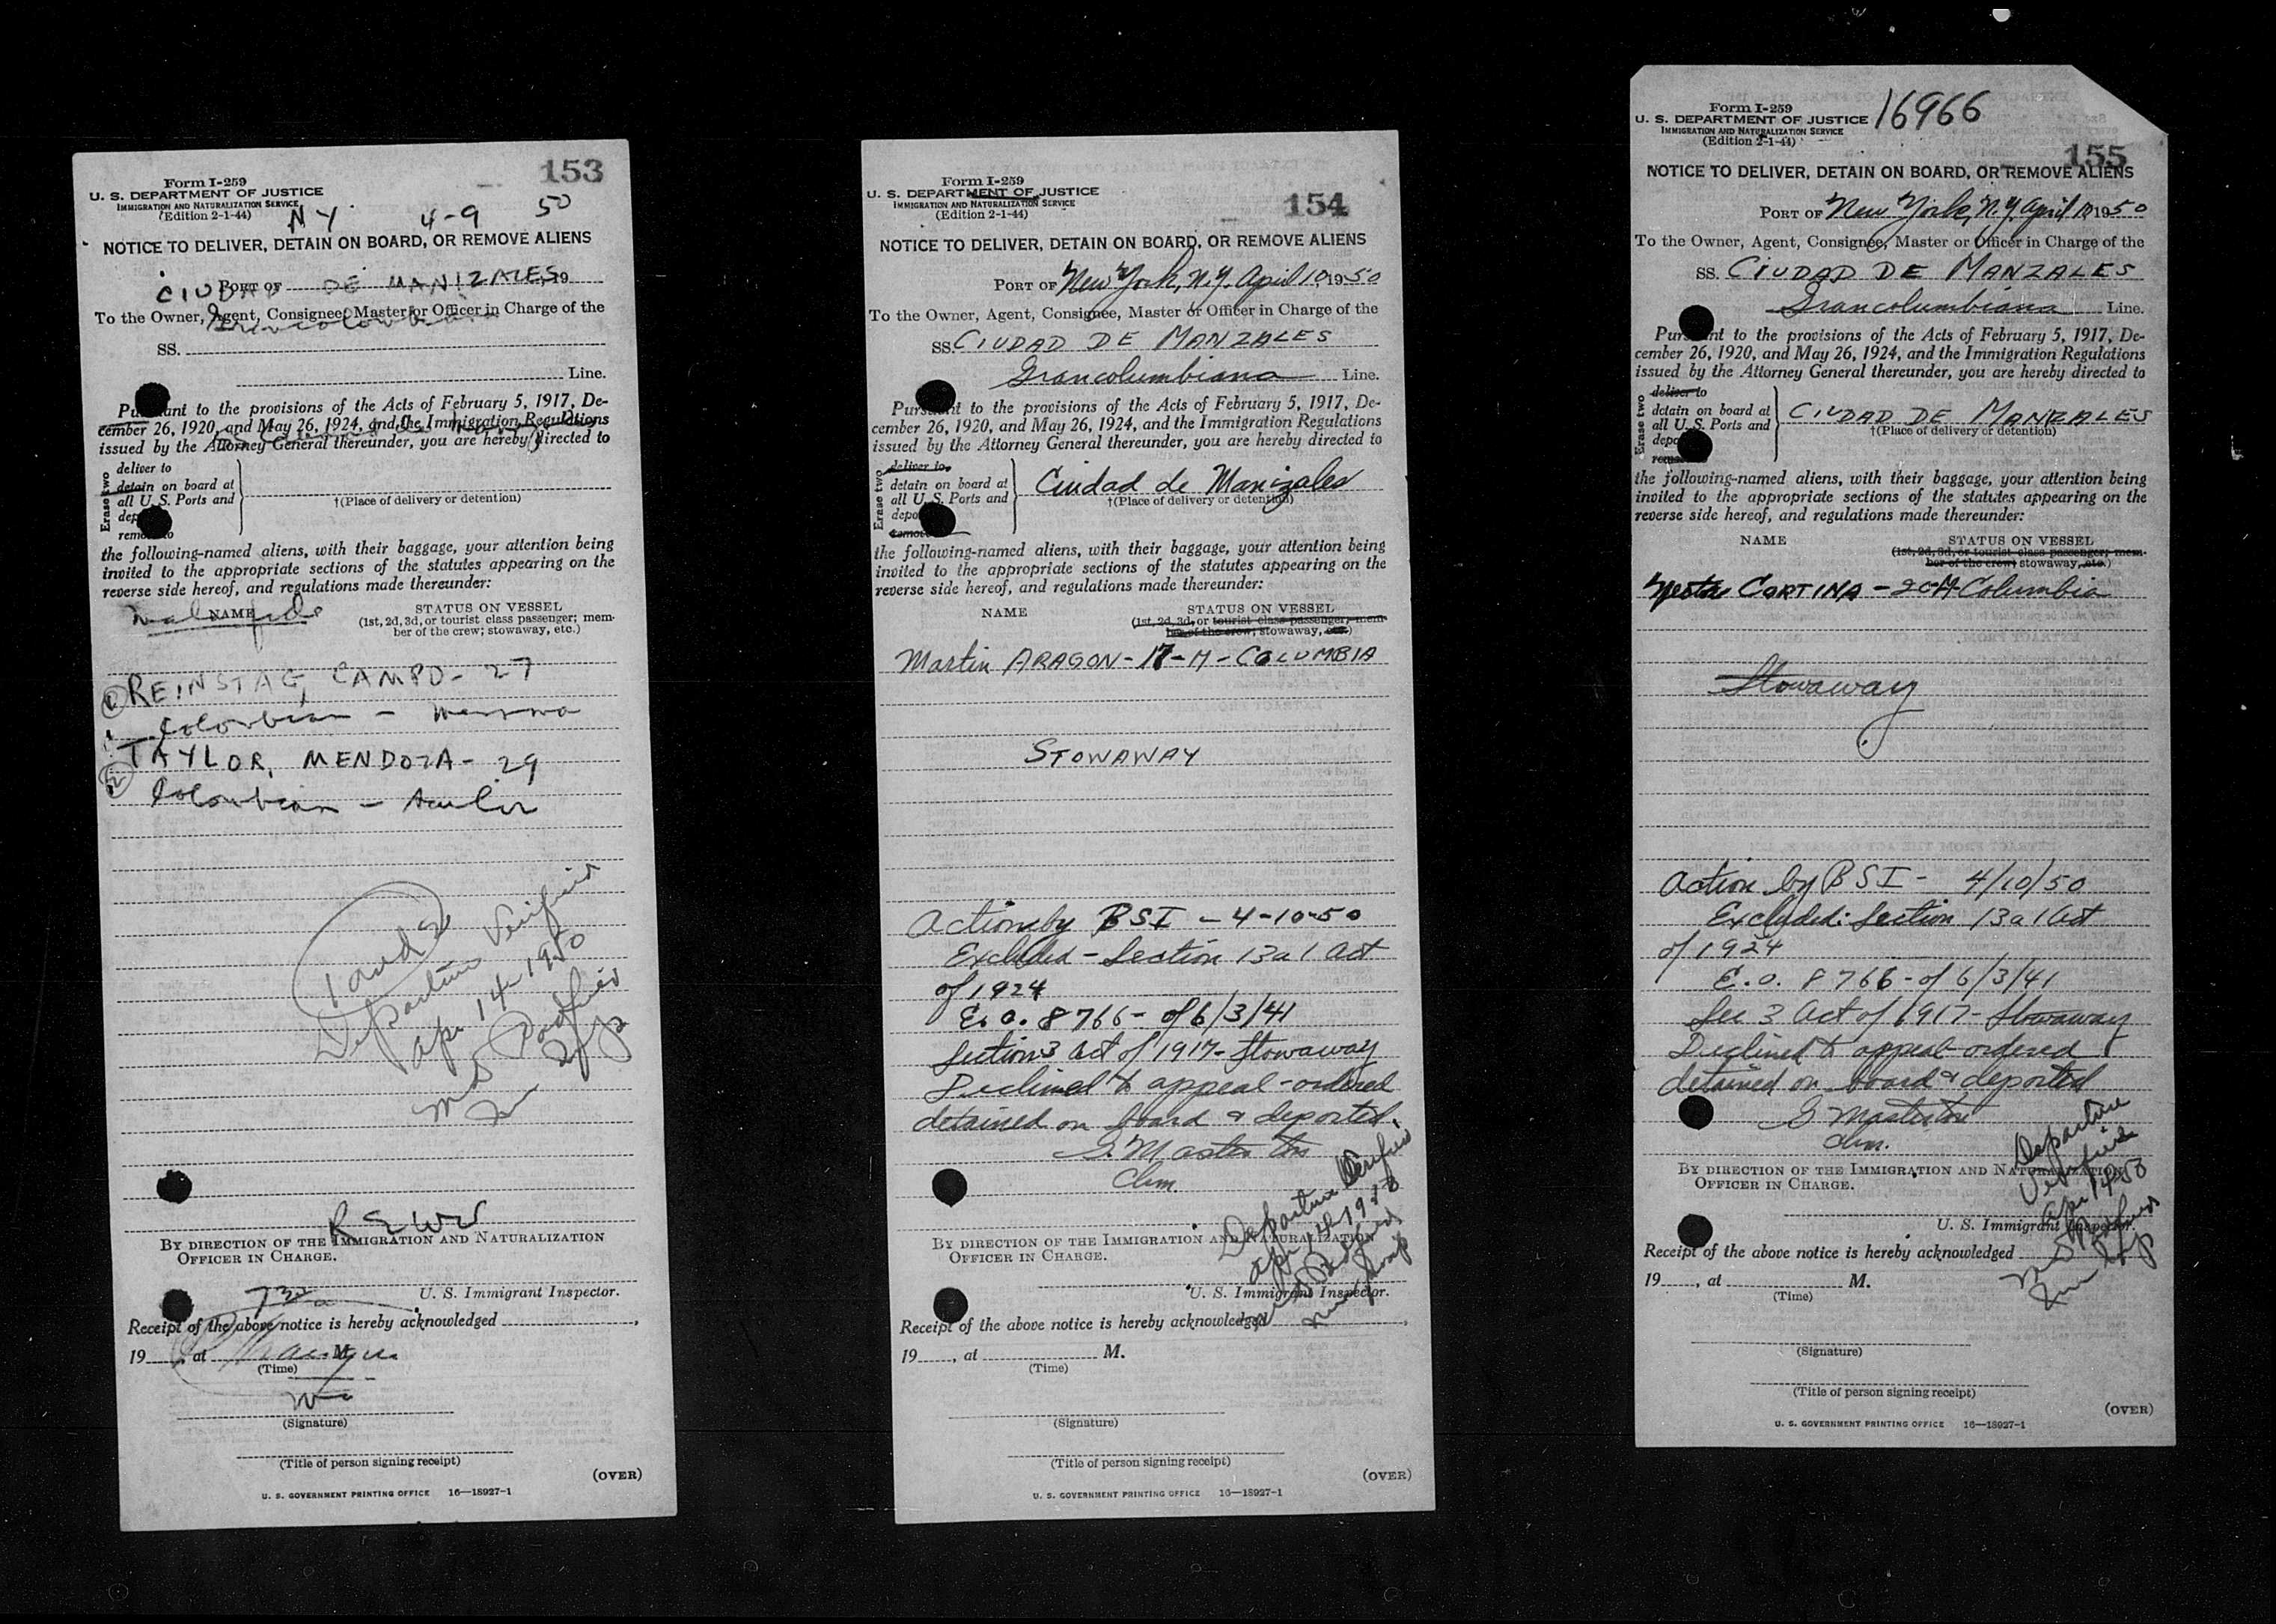 153
Form I-259
U. S. DEPARTMENT OF JUSTICE
IMMIGRATION AND NATURALIZATION SERVICE
(Edition 2-1-44)
NY 4-9 50
NOTICE TO DELIVER, DETAIN ON BOARD, OR REMOVE ALIENS
PORT OF 19
CIUDAD DE MANIZALES
To the Owner, Agent, Consignee, Master or Officer in Charge of the
Grancolombiana
SS.
Line.
Pursuant to the provisions of the Acts of February 5, 1917, De-
cember 26, 1920, and May 26, 1924, and the Immigration Regulations
issued by the Attorney General thereunder, you are hereby directed to
Erase two
deliver to
detain on board at
all U. S. Ports and
deport
remove to
†(Place of delivery or detention)
the following-named aliens, with their baggage, your attention being
invited to the appropriate sections of the statutes appearing on the
reverse side hereof, and regulations made thereunder:
mala fide
NAME
STATUS ON VESSEL
(1st, 2d, 3d, or tourist class passenger; mem-
ber of the crew; stowaway, etc.)
① REINSTAG, CAMPO - 27
Colombian -
② TAYLOR, MENDOZA - 29
Colombian -
1 and 2
Departure Verified
Apr 14 1950
BY DIRECTION OF THE IMMIGRATION AND NATURALIZATION
OFFICER IN CHARGE.
U. S. Immigrant Inspector.
Receipt of the above notice is hereby acknowledged
19, at M.
(Time)
(Signature)
(Title of person signing receipt)
(OVER)
U. S. GOVERNMENT PRINTING OFFICE 16—18927-1
Form I-259
U. S. DEPARTMENT OF JUSTICE
IMMIGRATION AND NATURALIZATION SERVICE
(Edition 2-1-44)
154
NOTICE TO DELIVER, DETAIN ON BOARD, OR REMOVE ALIENS
PORT OF New York, N.Y. April 10 1950
To the Owner, Agent, Consignee, Master or Officer in Charge of the
SS. CIUDAD DE MANZALES
Grancolumbiana Line.
Pursuant to the provisions of the Acts of February 5, 1917, De-
cember 26, 1920, and May 26, 1924, and the Immigration Regulations
issued by the Attorney General thereunder, you are hereby directed to
Erase two
deliver to
detain on board at
all U. S. Ports and
deport
remove to
Ciudad de Manizales
†(Place of delivery or detention)
the following-named aliens, with their baggage, your attention being
invited to the appropriate sections of the statutes appearing on the
reverse side hereof, and regulations made thereunder:
NAME
STATUS ON VESSEL
(1st, 2d, 3d, or tourist class passenger; mem-
ber of the crew; stowaway, etc.)
Martin ARAGON - 17 - M - COLUMBIA
STOWAWAY
Action by BSI - 4-10-50
Excluded - Section 13 a 1 Act
of 1924
E.O. 8766 - of 6/3/41
Section 3 Act of 1917 - Stowaway
Declined to appeal - ordered
detained on board & deported.
G. Masterton
Chm.
Departure Verified
Apr 14 1950
BY DIRECTION OF THE IMMIGRATION AND NATURALIZATION
OFFICER IN CHARGE.
U. S. Immigrant Inspector.
Receipt of the above notice is hereby acknowledged
19, at M.
(Time)
(Signature)
(Title of person signing receipt)
(OVER)
U. S. GOVERNMENT PRINTING OFFICE 16—18927-1
Form I-259
U. S. DEPARTMENT OF JUSTICE
IMMIGRATION AND NATURALIZATION SERVICE
(Edition 2-1-44)
16966
155
NOTICE TO DELIVER, DETAIN ON BOARD, OR REMOVE ALIENS
PORT OF New York, N.Y April 10 1950
To the Owner, Agent, Consignee, Master or Officer in Charge of the
SS. CIUDAD DE MANZALES
Grancolumbiana Line.
Pursuant to the provisions of the Acts of February 5, 1917, De-
cember 26, 1920, and May 26, 1924, and the Immigration Regulations
issued by the Attorney General thereunder, you are hereby directed to
Erase two
deliver to
detain on board at
all U. S. Ports and
deport
remove to
CIUDAD DE MANZALES
†(Place of delivery or detention)
the following-named aliens, with their baggage, your attention being
invited to the appropriate sections of the statutes appearing on the
reverse side hereof, and regulations made thereunder:
NAME
STATUS ON VESSEL
(1st, 2d, 3d, or tourist class passenger; mem-
ber of the crew; stowaway, etc.)
CORTINA - 20 M Columbia
Stowaway
Action by BSI - 4/10/50
Excluded: Section 13 a 1 Act
of 1924
E.O. 8766 - of 6/3/41
Sec 3 Act of 1917 - Stowaway
Declined to appeal - ordered
detained on board & deported
G Masterton
Chm.
Departure
Verified
Apr 14 50
BY DIRECTION OF THE IMMIGRATION AND NATURALIZATION
OFFICER IN CHARGE.
U. S. Immigrant Inspector.
Receipt of the above notice is hereby acknowledged
19, at M.
(Time)
(Signature)
(Title of person signing receipt)
(OVER)
U. S. GOVERNMENT PRINTING OFFICE 16—18927-1